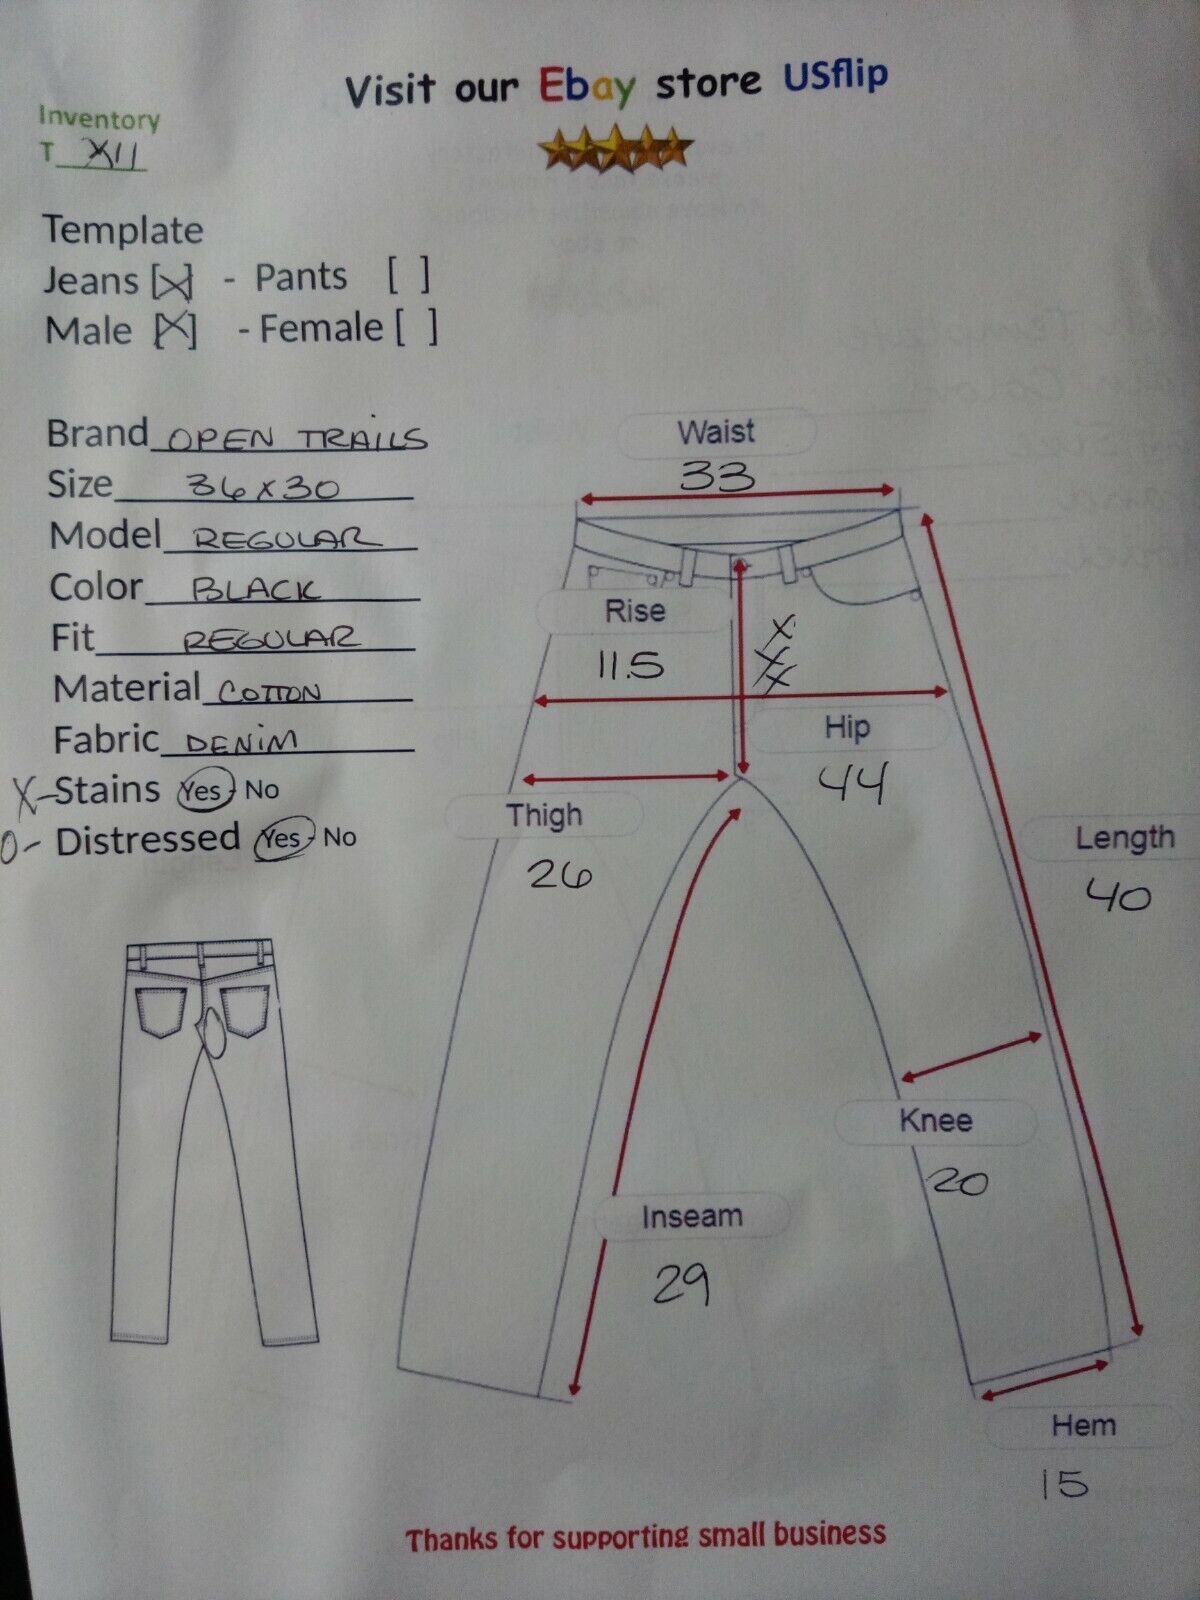 Visit our Ebay store USflip
Inventory
T XII
Template
Jeans [X] - Pants [ ]
Male [X] - Female [ ]
Brand OPEN TRAILS
Size 36x30
Model REGULAR
Color BLACK
Fit REGULAR
Material COTTON
Fabric DENIM
X-Stains Yes - No
O- Distressed Yes - No
Waist
33
Rise
11.5
X
X
X
Hip
44
Thigh
26
Length
40
Knee
20
Inseam
29
Hem
15
Thanks for supporting small business